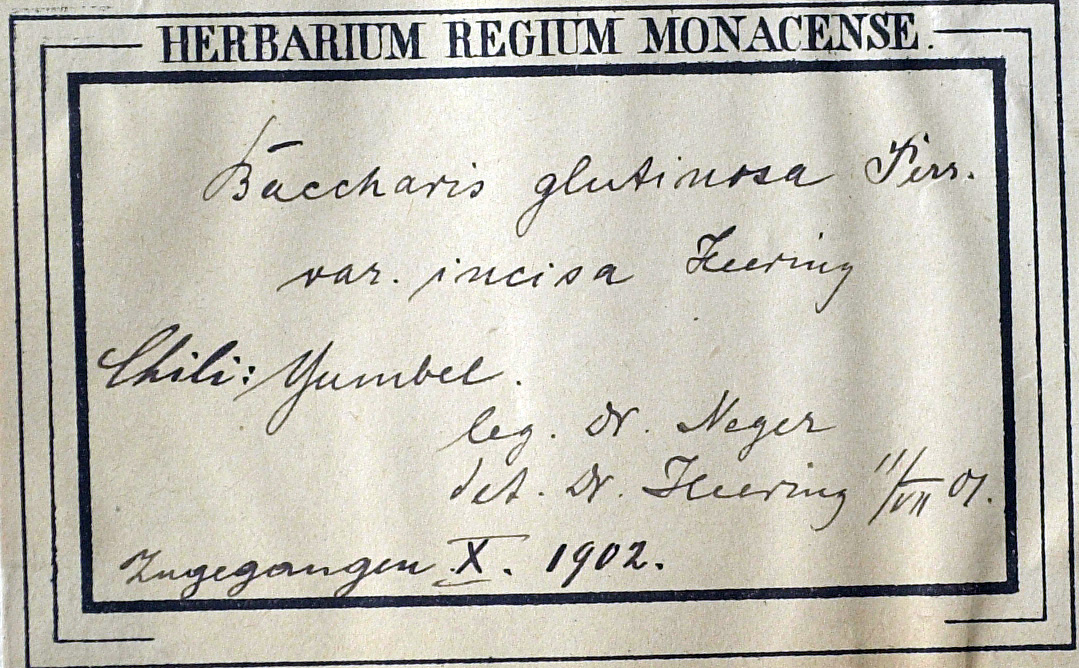 HERBARIUM REGIUM MONACENSE.
Baccharis glutinosa Pers.
var. incisa Heering
Chili: Yumbel.
leg. Dr. Neger
det. Dr. Heering 11/VII 01.
Zugegangen X. 1902.